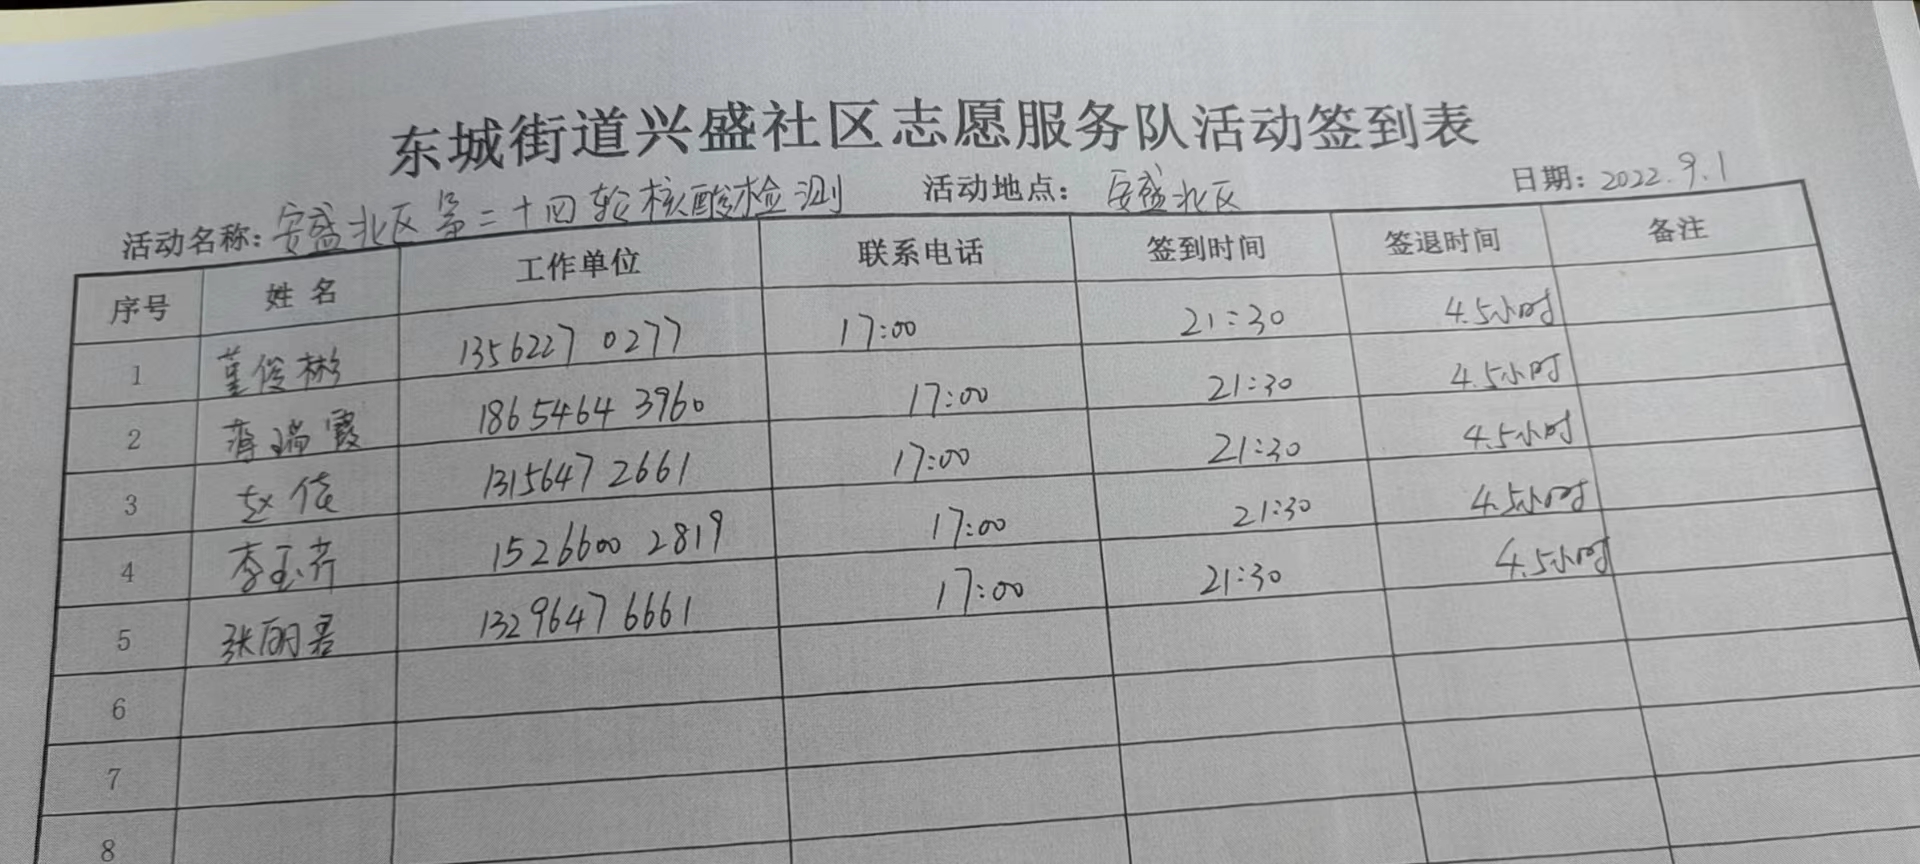 东城街道兴盛社区志愿服务队活动签到表
活动名称：安盛北区第二十四轮核酸检测 活动地点：安盛北区 日期：2022.9.1
序号 姓名 工作单位 联系电话 签到时间 签退时间 备注
1 董俊彬 1356227 0277 17:00 21:30 4.5小时
2 蒋瑞霞 1865464 3960 17:00 21:30 4.5小时
3 赵倩 1315647 2661 17:00 21:30 4.5小时
4 李玉芹 1526600 2819 17:00 21:30 4.5小时
5 张丽君 1329647 6661 17:00 21:30 4.5小时
6
7
8